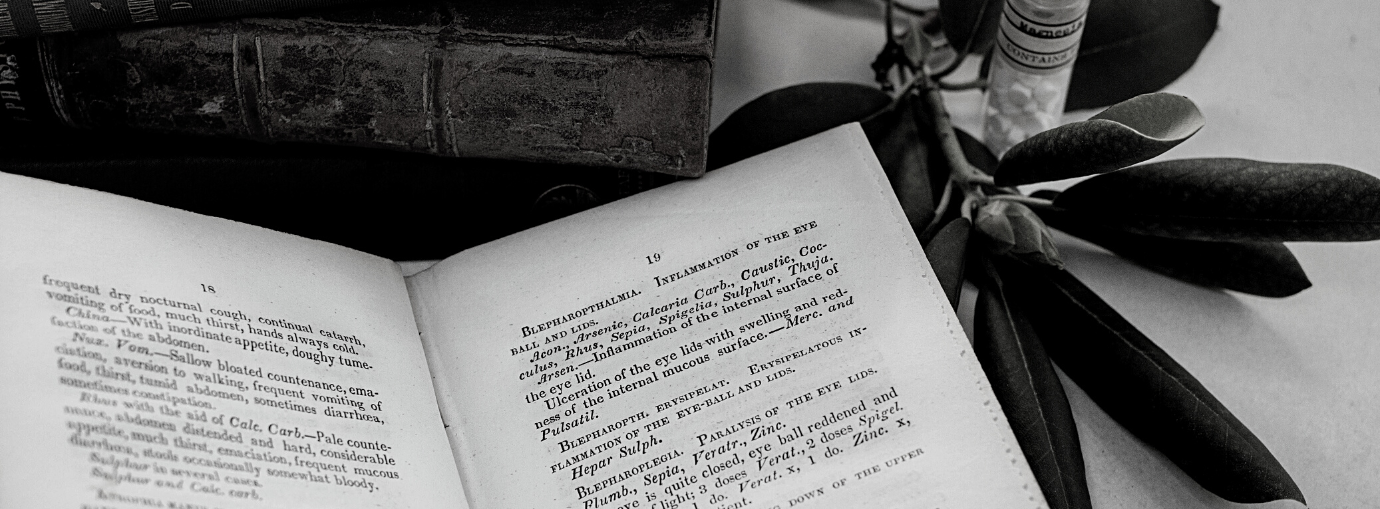 Magnesi
CONTAINS
18
frequent dry nocturnal cough, continual catarrh,
vomiting of food, much thirst, hands always cold.
China—With inordinate appetite, doughy tume-
faction of the abdomen.
Nux. Vom.—Sallow bloated countenance, ema-
ciation, aversion to walking, frequent vomiting of
food, thirst, tumid abdomen, sometimes diarrhœa,
sometimes constipation.
Rhus with the aid of Calc. Carb.—Pale counte-
nance, abdomen distended and hard, considerable
appetite, much thirst, emaciation, frequent mucous
diarrhœa, stools occasionally somewhat bloody.
Sulphur in several cases.
Sulphur and Calc. carb.
19
BLEPHAROPTHALMIA. INFLAMMATION OF THE EYE
BALL AND LIDS.
Acon., Arsenic, Calcaria Carb., Caustic, Coc-
culus, Rhus, Sepia, Spigelia, Sulphur, Thuja.
Arsen.—Inflammation of the internal surface of
the eye lid.
Ulceration of the eye lids with swelling and red-
ness of the internal mucous surface.—Merc. and
Pulsatil.
BLEPHAROPTH. ERYSIPELAT. ERYSIPELATOUS IN-
FLAMMATION OF THE EYE-BALL AND LIDS.
Hepar Sulph.
BLEPHAROPLEGIA. PARALYSIS OF THE EYE LIDS.
Plumb., Sepia, Veratr., Zinc.
eye is quite closed, eye ball reddened and
of light; 3 doses Verat., 2 doses Spigel.
1 do. Verat. x, 1 do. Zinc. x,
DOWN OF THE UPPER